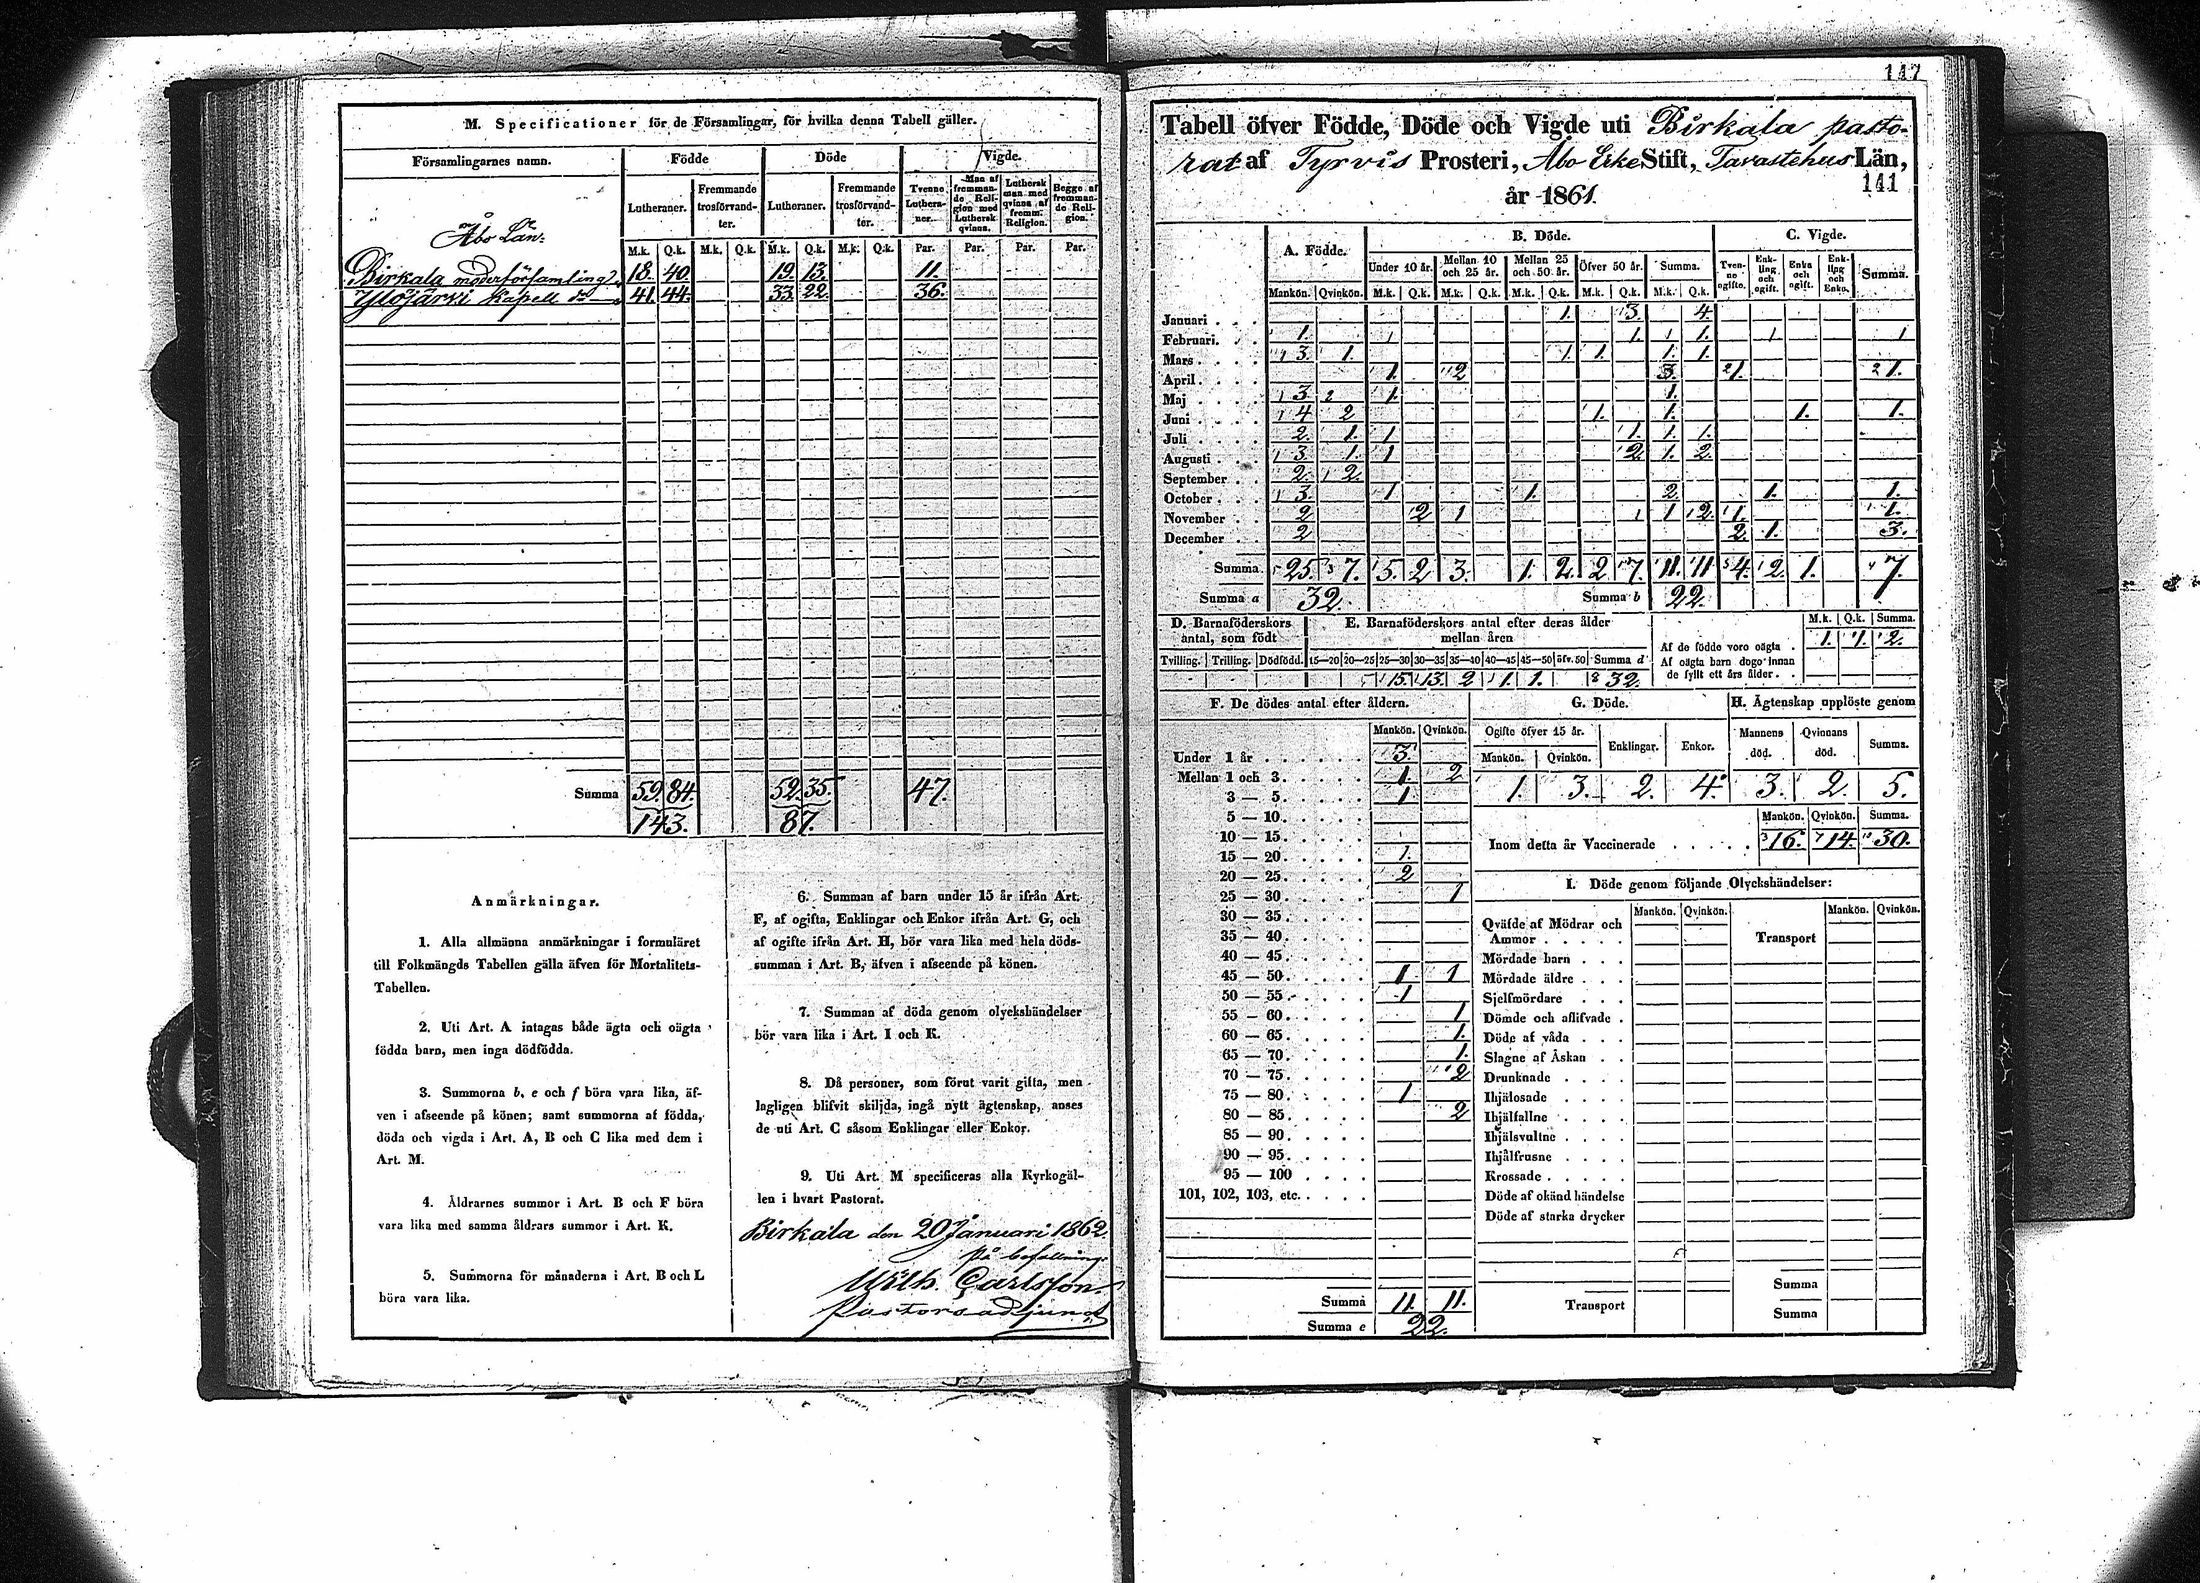 M. Specificationer för de Församlingar, för hvilka denna Tabell gäller.
Församlingarnes namn. Födde Döde Vigde.
Lutheraner. Fremmande trosförvandter. Lutheraner. Fremmande trosförvandter. Tvenne Lutheraner. Man af fremmande Religion med Luthersk qvinna. Luthersk man med qvinna af fremm. Religion. Begge af fremmande Religion.
M.k. Q.k. M.k. Q.k. M.k. Q.k. M.k. Q.k. Par. Par. Par. Par.
Åbo Län:
Birkala moderförsamling 18. 40. 19. 13. 11.
Ylöjärvi Kapell do 41. 44. 33. 22. 36.
Summa 59. 84. 52. 35. 47.
143. 87.
Anmärkningar.
1. Alla allmänna anmärkningar i formuläret
till Folkmängds Tabellen gälla äfven för Mortalitets-
Tabellen.
2. Uti Art. A intagas både ägta och oägta
födda barn, men inga dödfödda.
3. Summorna b, e och f böra vara lika, äf-
ven i afseende på könen; samt summorna af födda,
döda och vigda i Art. A, B och C lika med dem i
Art. M.
4. Åldrarnes summor i Art. B och F böra
vara lika med samma åldrars summor i Art. K.
5. Summorna för månaderna i Art. B och L
böra vara lika.
6. Summan af barn under 15 år ifrån Art.
F, af ogifta, Enklingar och Enkor ifrån Art. G, och
af ogifte ifrån Art. H, bör vara lika med hela döds-
summan i Art. B, äfven i afseende på könen.
7. Summan af döda genom olyckshändelser
bör vara lika i Art. I och K.
8. Då personer, som förut varit gifta, men
lagligen blifvit skiljda, ingå nytt ägtenskap, anses
de uti Art. C såsom Enklingar eller Enkor.
9. Uti Art. M specificeras alla Kyrkogäl-
len i hvart Pastorat.
Birkala den 20 Januari 1862.
På befallning:
Wilh. Carlsson.
Pastorsadjunct
147
Tabell öfver Födde, Döde och Vigde uti Birkala pasto-
rat af Tyrvis Prosteri, Åbo Erke Stift, Tavastehus Län,
år 1861.
141
A. Födde. B. Döde. C. Vigde.
Under 10 år. Mellan 10 och 25 år. Mellan 25 och 50 år. Öfver 50 år. Summa. Tvenne ogifte. Enkling och ogift. Enka och ogift. Enkling och Enka. Summa.
Mankön. Qvinkön. M.k. Q.k. M.k. Q.k. M.k. Q.k. M.k. Q.k. M.k. Q.k.
Januari 1. 3. 4
Februari. 1. 1 1. 1 1. 1 1
Mars 3. 1. 1. 1. 1. 1.
April. 1. 2 3. 1. 1.
Maj 3. 2 1. 1.
Juni 4 2 1. 1. 1. 1.
Juli 2. 1. 1 1. 1. 1.
Augusti 3. 1. 1 2. 1. 2.
September 2. 2.
October 3. 1 1. 2. 1. 1.
November 2 2 1 1 2. 1. 1.
December 2 2. 1. 3.
Summa. 25. 7. 5. 2 3. 1. 2. 2 7. 11. 11 4. 2. 1. 7.
Summa a 32. Summa b 22.
D. Barnaföderskors antal, som födt
E. Barnaföderskors antal efter deras ålder mellan åren
Tvilling. Trilling. Dödfödd. 15—20 20—25 25—30 30—35 35—40 40—45 45—50 öfv. 50 Summa d
15. 13. 2 1. 1. 32.
M.k. Q.k. Summa.
Af de födde voro oägta . 1. 1. 2.
Af oägta barn dogo innan
de fyllt ett års ålder . .
F. De dödes antal efter åldern.
Mankön. Qvinkön.
Under 1 år 3
Mellan 1 och 3. 1. 2
3 — 5. 1
5 — 10.
10 — 15.
15 — 20. 1.
20 — 25. 2
25 — 30. 1
30 — 35.
35 — 40.
40 — 45.
45 — 50. 1 1
50 — 55. 1
55 — 60. 1
60 — 65. 1.
65 — 70. 1.
70 — 75. 2
75 — 80. 1
80 — 85. 2
85 — 90.
90 — 95.
95 — 100
101, 102, 103, etc.
Summa 11. 11.
Summa e 22.
G. Döde.
Ogifte öfver 15 år. Enklingar. Enkor.
Mankön. Qvinkön.
1. 3. 2. 4.
H. Ägtenskap upplöste genom
Mannens död. Qvinnans död. Summa.
3. 2. 5.
Mankön. Qvinkön. Summa.
Inom detta år Vaccinerade 16. 14. 30.
I. Döde genom följande Olyckshändelser:
Mankön. Qvinkön. Mankön. Qvinkön.
Qväfde af Mödrar och
Ammor Transport
Mördade barn
Mördade äldre
Sjelfmördare
Dömde och aflifvade
Döde af våda
Slagne af Åskan
Drunknade
Ihjälosade
Ihjälfallne
Ihjälsvultne
Ihjälfrusne
Krossade
Döde af okänd händelse
Döde af starka drycker
Summa
Transport Summa